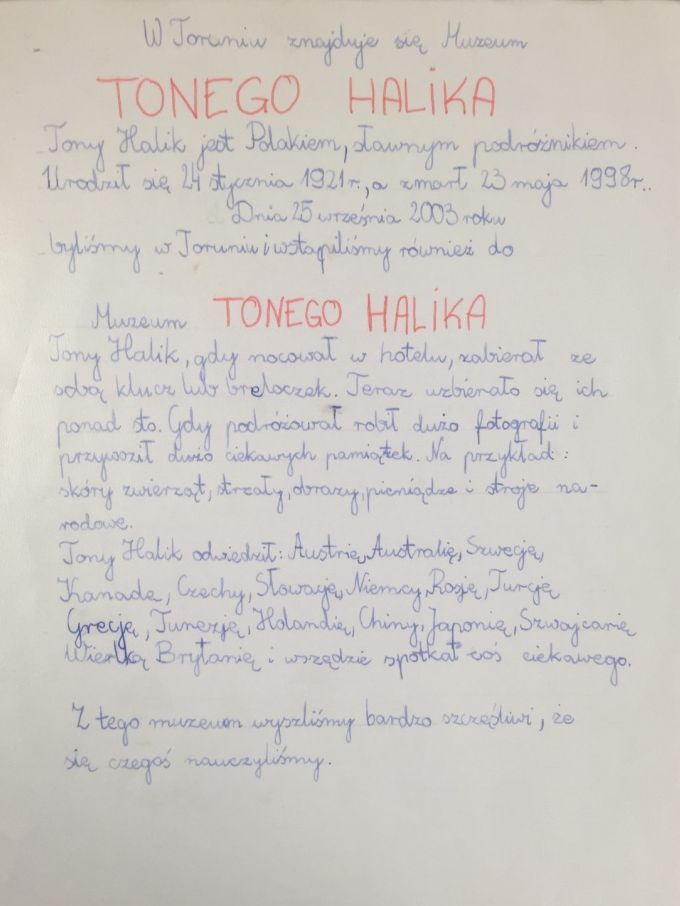 W Toruniu znajduje się Muzeum
TONEGO HALIKA
Tony Halik jest Polakiem, sławnym podróżnikiem.
Urodził się 24 stycznia 1921r., a zmarł 23 maja 1998r..
Dnia 25 września 2003 roku
byliśmy w Toruniu i wstąpiliśmy również do
Muzeum TONEGO HALIKA
Tony Halik, gdy nocował w hotelu, zabierał ze
sobą klucz lub breloczek. Teraz uzbierało się ich
ponad sto. Gdy podróżował robił dużo fotografii i
przywoził dużo ciekawych pamiątek. Na przykład:
skóry zwierząt, strzały, obrazy, pieniądze i stroje na-
rodowe.
Tony Halik odwiedził: Austrię, Australię, Szwecję,
Kanadę, Czechy, Słowację, Niemcy, Rosję, Turcję
Grecję, Tunezję, Holandię, Chiny, Japonię, Szwajcarię
Wielką Brytanię i wszędzie spotkał coś ciekawego.
Z tego muzeum wyszliśmy bardzo szczęśliwi, że
się czegoś nauczyliśmy.